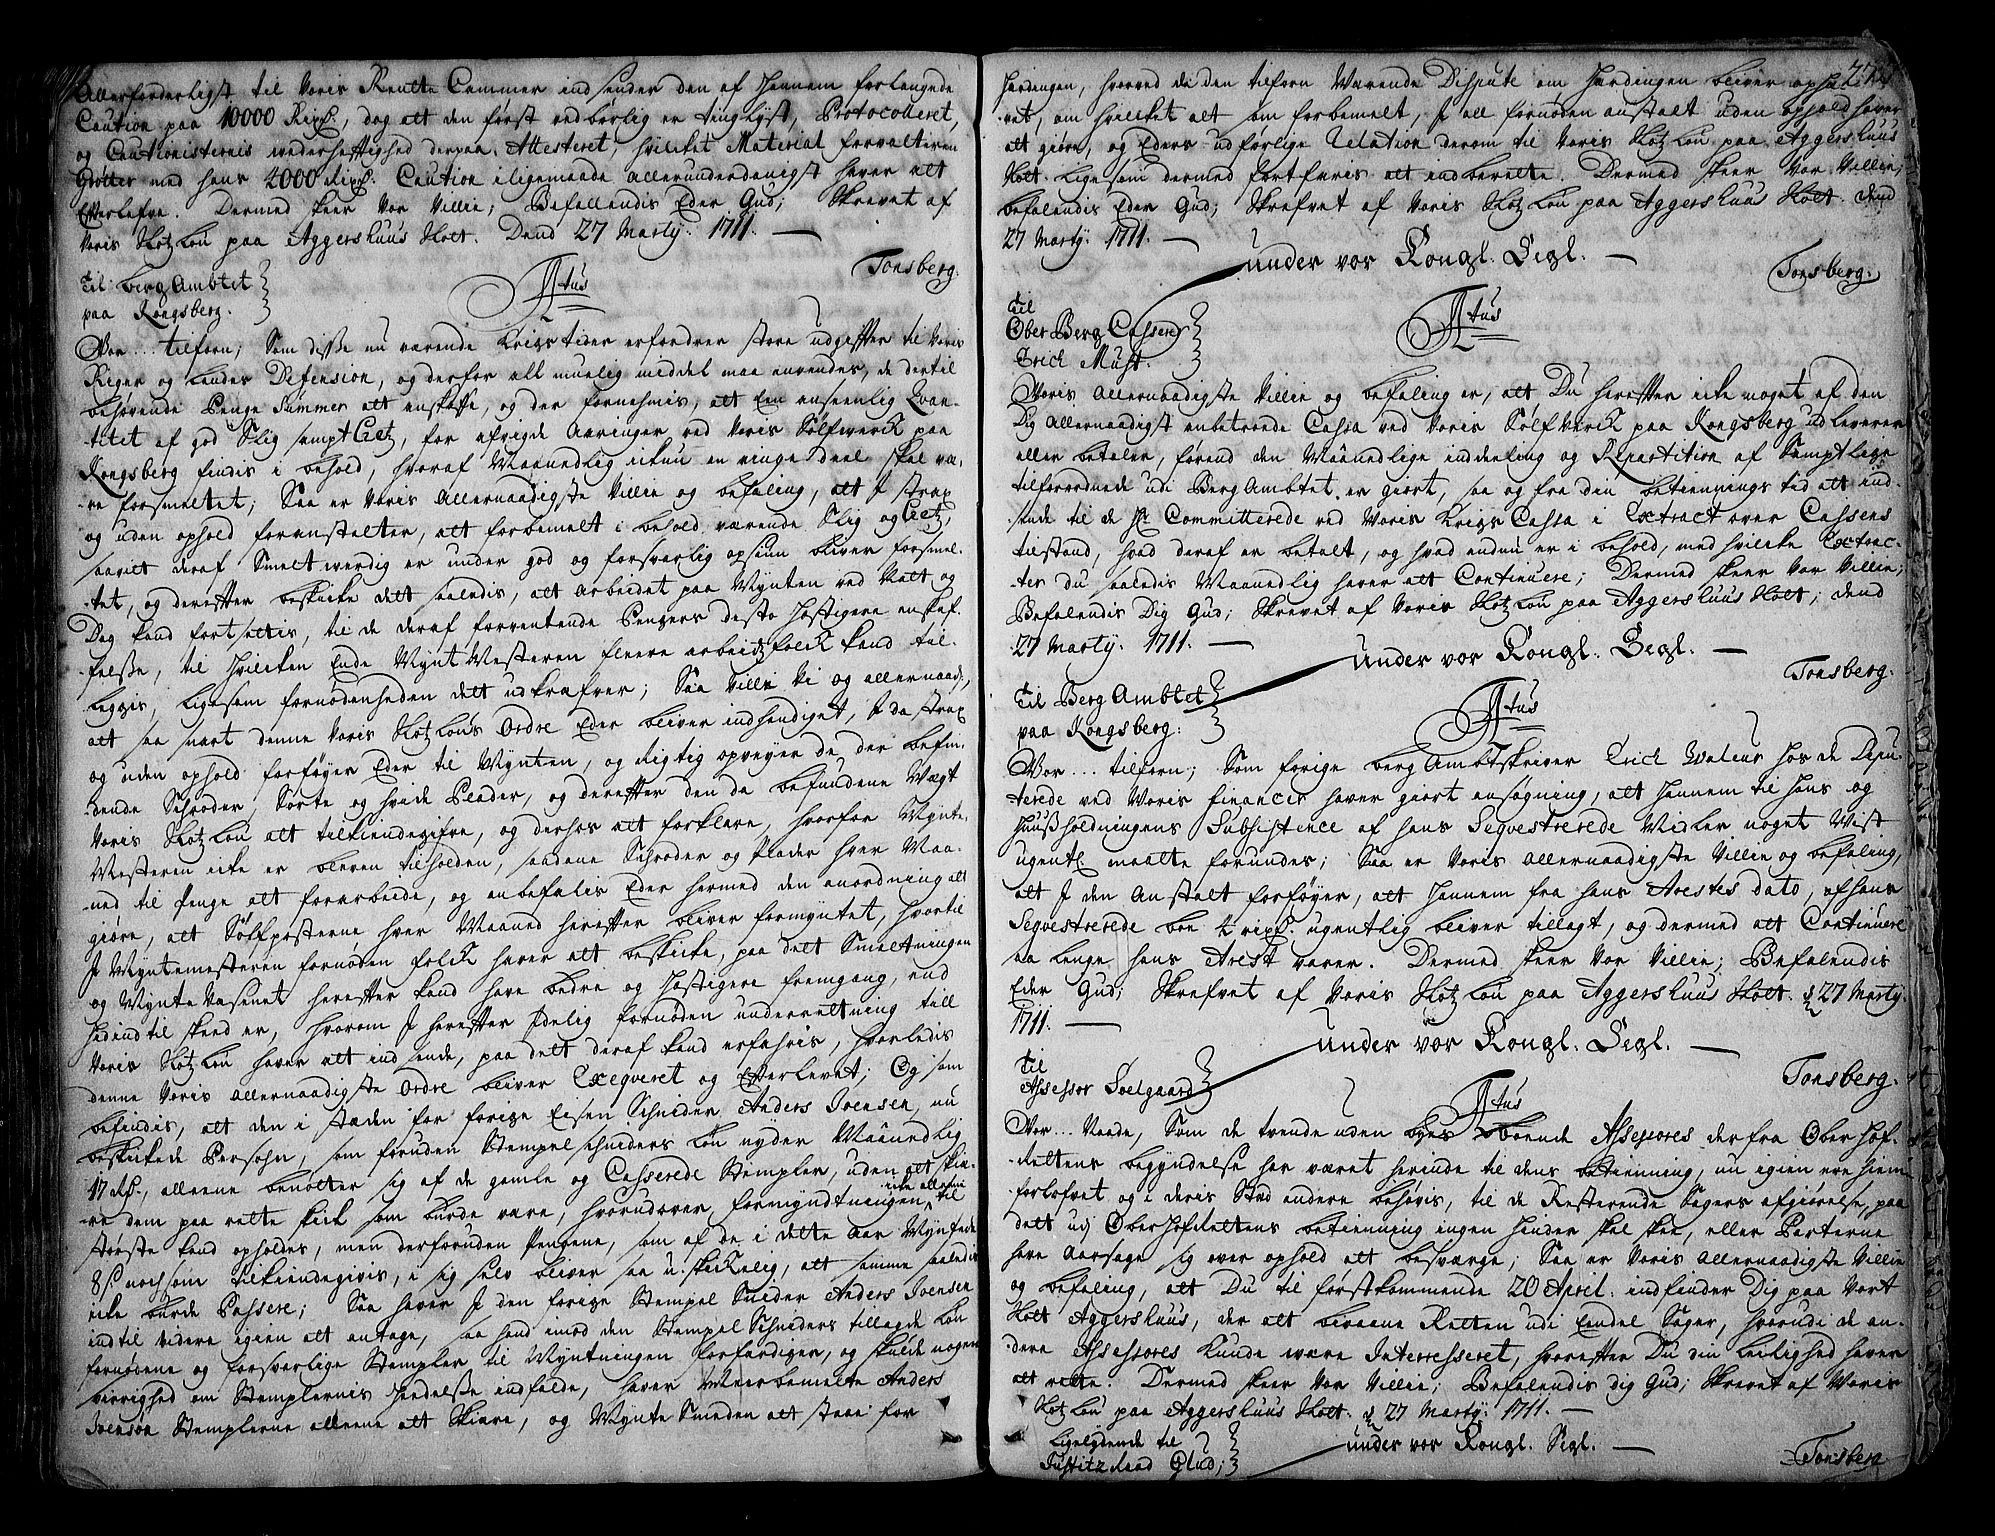 Allerforderligst til Voris Rente Cammer indsender den af Hannem forlangede
Caution paa 10000 Rixd., dog att den først vedbørlig er tinglyst, Protocolleret,
og Cautionisternis wederheftighed derpaa Attesteret, hvilket Material forvalteren
med hans 2000 Rixd. Caution iligemaade allerunderdanigst haver att
Efterlefve. Dermed skeer Vor Villie; Befallendis Eder Gud; Skrevet af
Voris Slotz Lou paa Aggershuus Slott. Dend 27 Marty. 1711. —
Tonsberg.
Til Berg Ambtet
paa Kongsberg.
Vor... tilforn; Som disse nu værende Krigs tider erfordrer store udgifter til Voris
Riger og Landes Defension, og derfor all muelig middel maa anvendes, de dertil
behørende Penge Summer att anskaffe, og der fornehmis, att Een anseenlig Qvan-
titet af god Slig sampt Ertz, for afvigde Aaringer ved Voris Sølfwerck paa
Kongsberg findis i behold, hvoraf Maanedlig ikun en ringe deel skal væ-
re forsmeltet; Saa er Voris allernaadigste Villie og befaling, att I strax
og uden ophold foranstalter, att forbemelt i behold værende Slig og Ertz,
saavit deraf Smelt werdig er under god og forsvarlig opsiun bliver forsmel-
tet, og derefter beskicke det saaledis, att arbeidet paa Mynten ved Natt og
Dag kand fortsettis, til de deraf forventende Pengers desto hastigere anskaf-
felse, til hvilcken Ende Mynt Mesteren fleere arbeidsfolck kand til-
leggis, ligesom fornødenheden det udkræfver; Saa ville Vi og allernaad.,
att saa snart denne Voris Slotz Lous Ordre Eder bliver indhendiget, I da strax
og uden ophold forføyer Eder til Mynten, og rigtig opveyer de der befin-
dende Schroder, Sorte og hvide Plader, og derefter den da befundene Vægt
Voris Slotz Lou att tilkiendegifve, og derhos att forklare, hvorfor Mynte-
Mesteren icke er bleven tilholden, saadane Schroder og Plader hver Maa-
ned til Penge att forarbeide, og anbefalis Eder hermed den anordning att
giøre, att Sølfposterne hver Maaned herefter bliver formyntet, hvortil
I Myntemesteren fornøden folck haver att beskicke, paa det Smeltningen
og Mynte Væsenet herefter kand have bedre og hastigere fremgang, end
hidindtil skeed er, hvorom I herefter Idelig fornøden underretning till
Voris Slotz Lou haver att indsende, paa det deraf kand erfahris, hvorledis
denne Voris allernaadigste Ordre bliver Exeqveret og Efterlevet; Og som
befindis, att den i stæden for forige Eisen Schnider Anders Ivensen, nu
beskickede Persohn, som foruden Stempelschniders Løn nyder Maanedlig
17 Rd., alleene benøtter sig af de gamle og Casserede Stempler, uden att skiæ-
re dem paa rette skick som burde være, hvorudover, formyndtningen, icke alleene til
største kand opholdes, men derforuden Pengene, som af de i dette Aar Myntede
8 s. noch som tilkiendegivis, i sig self bliver saa u-skickelig, att samme saaledis
icke burde Passere; Saa haver I den forige Stempel Snider Anders Ivensen
indtil videre igien att antage, saa hand imod den Stempel Schniders tillagde Løn
fornøene og forsvarlige Stempler til Myntningen forfærdiger, og skulde nogen
verrighed om Stemplernis hendelse indfalde, haver Meerbemelte Anders
Ivensøn Stemplerne alleene att Skiære, og Mynte Smeden att staae for
hærdingen, hvorved da den tilforn Værende Dispute om Hærdingen bliver ophæ-
vet, om hvilcket alt som forbemelt, I all fornøden anstalt uden ophold haver
att giøre, og Eders udførlige Relation derom til Voris Slotz Lou paa Aggershuus
Slott ligesom dermed fortfaris att indberette. Dermed skeer Vor Villie;
befalendis Eder Gud; Skrefvet af Voris Slotz Lou paa Aggershuus Slott. Dend
27 Marty. 1711. —
under vor Kongl. Segl. —
Tonsberg.
Til
Ober Berg Casserer
Erich Must.
Voris allernaadigste Villie og befaling er, att Du herefter icke noget af den
Dig allernaadigst anbetroede Cassa ved Voris Sølfverck paa Kongsberg udleverer
eller betaler, førend den Maanedlige inddeeling og Repartition af Samptlige
tilforordnede udi Berg Ambtet er giort, saa og fra din betiennings tid att ind-
sende til de Hr. Committerede ved Voris Krigs Cassa i Extract over Cassens
tilstand, hvad deraf er betalt, og hvad endnu er i behold, med hvilcke Extrac-
ter du saaledis Maanedlig haver att Continuere; Dermed skeer Vor Villie;
Befalendis Dig Gud; Skrevet af Voris Slotz Lou paa Aggershuus Slott; Dend
27 Marty. 1711. —
under vor Kongl. Segl. —
Tonsberg.
Til Berg Ambtet
paa Kongsberg:
Vor... tilforn; Som forige Berg Ambtskriver Erich hos de Depu-
terede ved Voris Financer haver giort ansøgning, att Hannem til Hans og
Huusholdningens Subsistence af hans Seqvestrerede Midler noget Vist
ugentl. maatte forundes; Saa er Voris allernaadigste Villie og befaling,
att I den Anstalt forføyer, att Hannem fra hans Arestes dato, af hans
Seqvestrerede boe 2 rixd. ugentlig bliver tillagt, og dermed att Continuere
saa lenge hans Arest varer. Dermed skeer Vor Villie; Befalendis
Eder Gud; Skrefvet af Voris Slotz Lou paa Aggershuus Slott. d. 27 Marty.
1711. —
under vor Kongl. Segl. —
Tonsberg.
Til
Assessor Soelgaard
Vor... Naade, Som de tvende uden byes boende Assessores der fra Ober Hof-
Rettens begyndelse har været herinde til dens betienning, nu igien ere hiem-
forlofvet og i deris Sted andere behøvis, til de Resterende Sagers afgiørelse, paa
det udj Ober Hofrettens betienning ingen hinder skal skee, eller Parterne
have aarsage sig over ophold att besværge; Saa er Voris allernaadigste Villie
og befaling, att Du til førstkommende 20 April. indfinder Dig paa Vort
Slott Aggershuus, der att bivaane Retten udi Eendel Sager, hvorudi de an-
dere Assessores kunde være Interresseret, hvorefter Du din leilighed haver
att rette. Dermed skeer Vor Villie; Befalendis dig Gud; Skrevet af Voris
Slotz Lou paa Aggershuus Slott. d. 27 Marty. 1711. —
under vor Kongl. Segl. —
Ligelydende til
Justitz Raad Glud;
Tonsberg